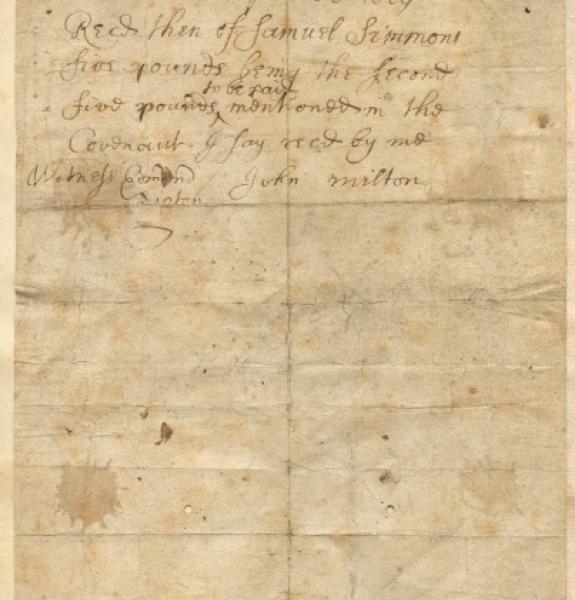 Recd then of Samuel Simmons
five pounds being the Second
to be paid
five pounds mentioned in the
Covenant. I say recd by me
Witness John Milton